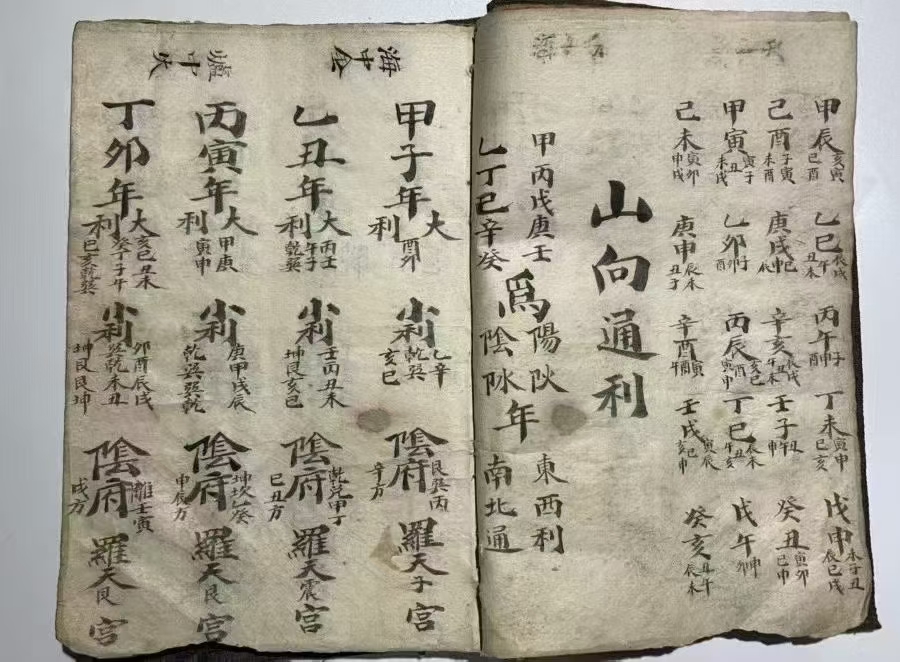 甲辰 亥寅 巳酉
乙巳 辰戌
丙午
丁未 寅申 巳亥
戊申 未子丑 辰巳戌
己酉 子寅 未酉
庚戌
辛亥 辰戌
壬子
癸丑 寅卯 巳申
甲寅 寅子 丑 未戌
乙卯
丙辰 亥巳 酉 寅申
丁巳 辰未
戊午 申 卯
己未 寅卯 申戌
庚申 辰未 丑子
辛酉
壬戌 寅辰
癸亥 丑午 辰未
山向通利
甲丙戊庚壬
乙丁己辛癸
為
陽
陰
年
東西利
南北通
海中金
甲子年
大利 酉卯
小利 乙辛 乾巽 亥巳
陰府 艮巽丙 辛方
羅天子宮
乙丑年
大利 丙壬 午子 乾巽
小利 壬丙丑未 坤艮亥巳
陰府 乾兌甲丁 巳丑方
羅天震宮
爐中火
丙寅年
大利 甲庚 寅申
小利 庚甲戌辰 乾巽巽乾
陰府 坤坎乙癸 申辰方
羅天艮宮
丁卯年
大利 亥巳丑未 癸丁子午 巳亥乾巽
小利 卯酉辰戌 巽乾未丑 坤艮艮坤
陰府 離壬寅 戌方
羅天艮宮